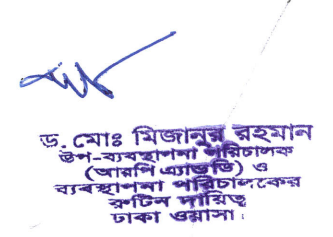 ড. মোঃ মিজানুর রহমান
উপ-ব্যবস্থাপনা পরিচালক
(আরপি এ্যান্ডডি) ও
ব্যবস্থাপনা পরিচালকের
রুটিন দায়িত্ব
ঢাকা ওয়াসা।